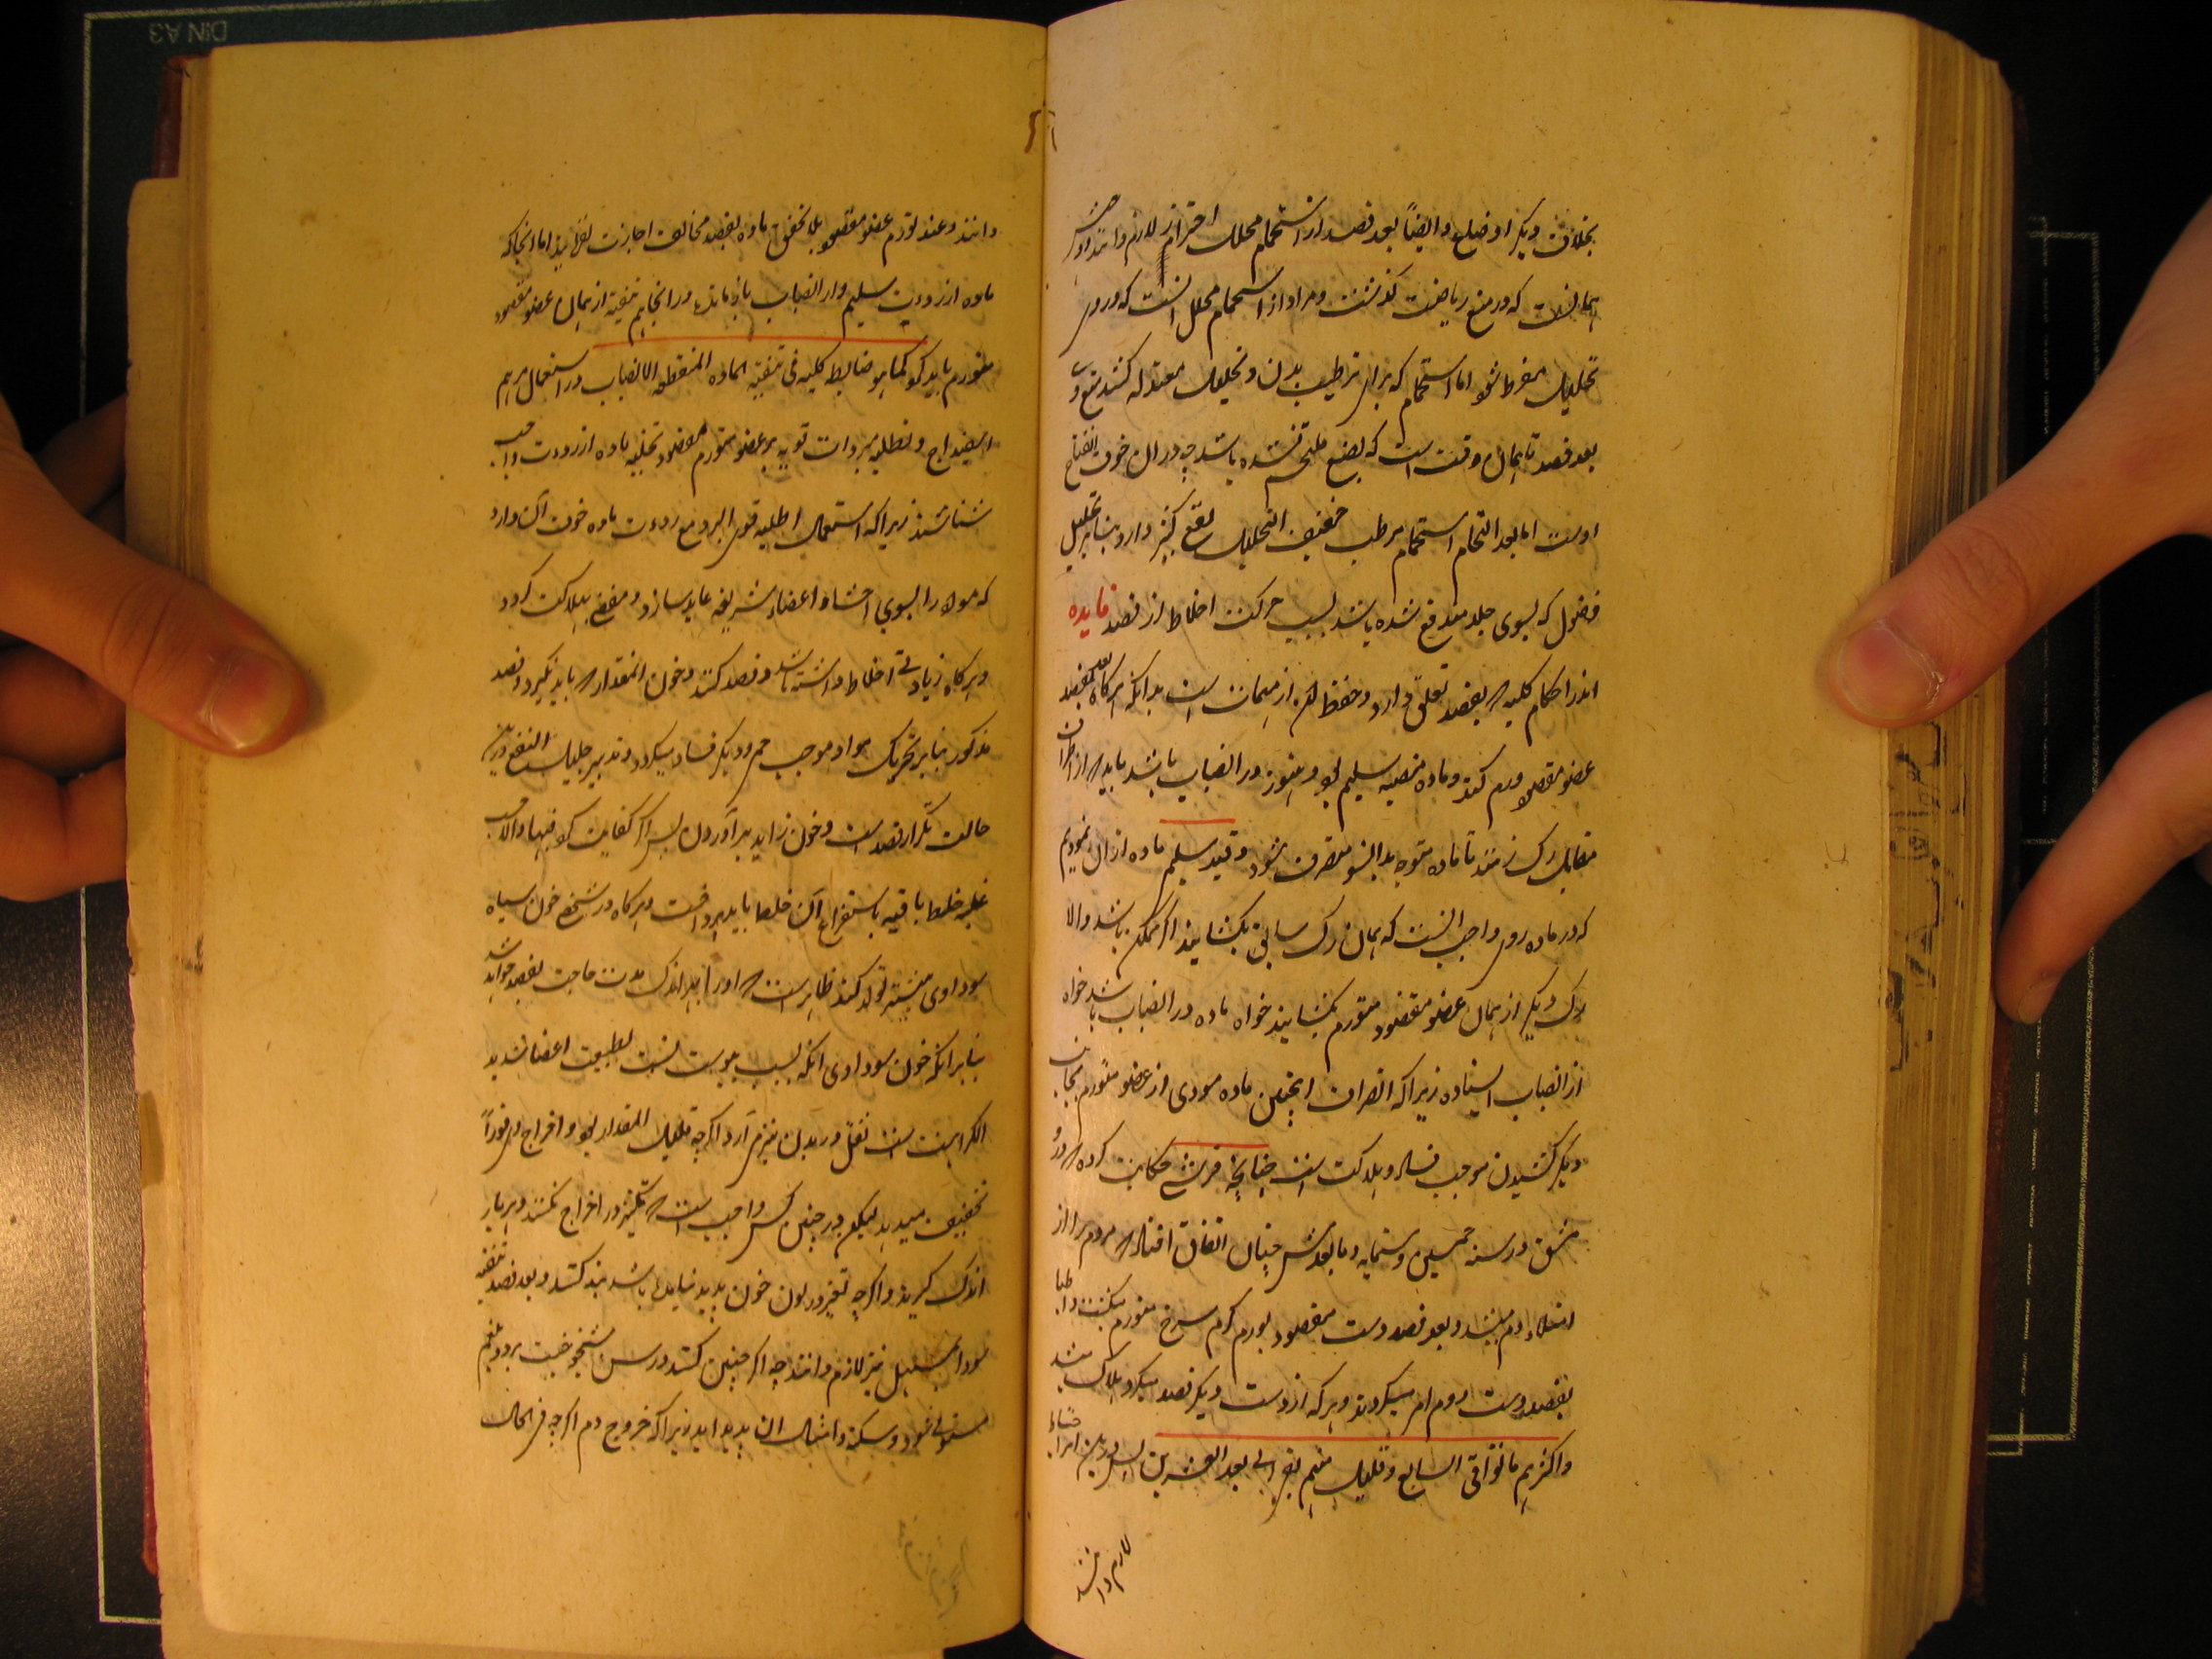 بخلاف دیگر اوضاع وایضاً بعد فصد از استحمام محلل احتراز لازم دانند و
همانست که در منع ریاضت گذشت و مراد از استحمام محلل انست که در وی
تحلیل مفرط شود اما استحمام که برای ترطیب بدن و تحلیل معتدله کنند منع
بعد فصد تا همان وقت است که بضع ملتحم نشده باشد چه در ان خوف انفتاح
اوست اما بعد التحام استحمام مرطب خفیف التحلیل نفع کثیر دارد بنابر تحلیل
فضول که بسوی جلد مندفع شده باشند بسبب حرکت اخلاط از فصد فایده
اندر احکام کلیه که بفصد تعلق دارد و حفظ ان از مهمات است بدانکه هرگاه بعد فصد
عضو مقصود ورم کند و ماده منصبه سلیم بود و هنوز در انصباب باشد باید که از طرف
مقابل رک زنند تا ماده متوجه بدانسو منصرف شود و قید سلیم ماده از ان نمودیم
که در ماده ردی واجب انست که همان رک سابق بکشایند اگر ممکن باشد والا
رک دیگر از همان عضو مفصود متورم بکشایند خواه ماده در انصباب باشد خواه
از انصباب ایستاده زیراکه انصراف اینچنین ماده موذی از عضو متورم بجانب
دیگر کشیدن موجب فساد و هلاکت است چنانچه قرشی حکایت کرده که در
مشق در سنه خمسین و ستمایه و مابعدش چنان اتفاق افتاد که مردم را از
امتلاء دم میشد و بعد فصد دست مفصود بورم گرم سرخ متورم میکشت و اطبا
بفصد دست دوم امر میکردند و هرکه از دست دیگر فصد میکرد هلاک میشد
واکثرهم مات فی السابع و قلیل منهم بقی الی بعد العشرین پس درین امر احتیاط
لازم دانند
دانند و عند تورم عضو مفصود بلا تحقیق ماده بفصد مخالف اجازت نفرمایند اما انجا که
ماده از ردءت سلیم و از انصباب باز ماند در انجا هم تنقیه از همان عضو مقصود
متورم باید کرد کما هو ضابط کلیه فی تنقیة الماده المنقطعه الانصباب و در استعمال مرهم
اسفیداج و تطلیه مبردات قویه بر عضو متورم مفصود تخلیه ماده از ردءت واجب
شناسند زیراکه استعمال اطلیه قوی البرد مع ردءت ماده خوف آن دارد
که مواد را بسوی احشا و اعضاء شریفه عاید سازد و مفضی بهلاکت کردد
و هرکاه زیادتی اخلاط داشته باشد و فصد کنند و خون المقدار که باید نگیرد و فصد
مذکور بنابر تحریک مواد موجب حمی و دیگر فساد میکردد و تدبیر جلیل النفع درین
حالت تکرار فصد است و خون زاید برآوردن پس اگر کفایت کرد فبها والا بحسب
غلبه خلط باقیه باستفراغ آن خلط باید پرداخت و هرکاه در شخص خون سیاه
سوداوی بیشتر تولد کند ظاهر است که او را بعد اندک مدت حاجت بفصد خواهد شد
بنابر انکه خون سوداوی انکه بسبب یبوست نسبت بطبیعت اعضا شدید
الکراهیت است ثقل در بدن نیز می آرد اگرچه قلیل المقدار بود و اخراج وی فوراً
تخفیف میدهد لیکن در چنین کس واجب است که تکثیر در اخراج نکنند و هر بار
اندک گیرند و اگرچه تغیر در لون خون پدید نیامده باشد بند کنند و بعد فصد تنقیه
سودا بمسهل نیز لازم دانند چه اگر چنین کنند در سن شیخوخیت برد و بلغم
مستولی شود و سکته و امثال ان پدید اید زیراکه خروج دم اگرچه فی الحال